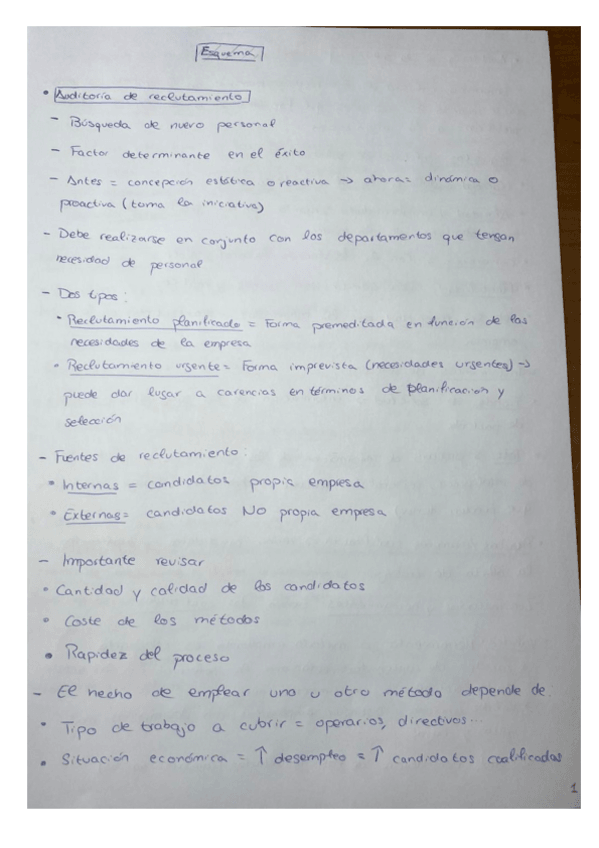 Esquema
• Auditoría de reclutamiento
- Búsqueda de nuevo personal
- Factor determinante en el éxito
- Antes = concepción estática o reactiva → ahora = dinámica o
proactiva (toma la iniciativa)
- Debe realizarse en conjunto con los departamentos que tengan
necesidad de personal
- Dos tipos:
• Reclutamiento planificado = Forma premeditada en función de las
necesidades de la empresa
• Reclutamiento urgente = Forma imprevista (necesidades urgentes) →
puede dar lugar a carencias en términos de planificación y
selección
- Fuentes de reclutamiento:
• Internas = candidatos propia empresa
• Externas = candidatos NO propia empresa
- Importante revisar
• Cantidad y calidad de los candidatos
• Coste de los métodos
• Rapidez del proceso
- El hecho de emplear uno u otro método depende de.
• Tipo de trabajo a cubrir = operarios, directivos...
• Situación económica = ↑ desempleo = ↑ candidatos cualificados
1